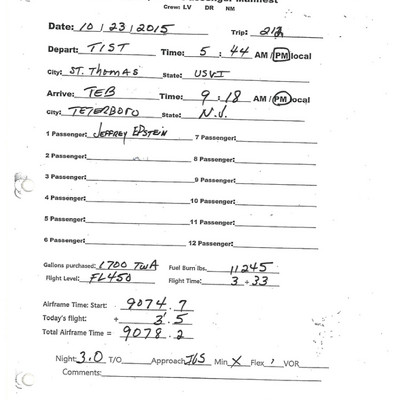 Passenger Manifest
Crew: LV DR NM
Date: 10 / 23 / 2015 Trip: 212
Depart: TIST Time: 5 : 44 AM / PM local
City: ST. THOMAS State: USVI
Arrive: TEB Time: 9 : 18 AM / PM local
City: TETERBORO State: N.J.
1 Passenger: JEFFREY EPSTEIN 7 Passenger:
2 Passenger: 8 Passenger:
3 Passenger: 9 Passenger:
4 Passenger: 10 Passenger:
5 Passenger: 11 Passenger:
6 Passenger: 12 Passenger:
Gallons purchased: 1700 TWA Fuel Burn lbs. 11245
Flight Level: FL450 Flight Time: 3 + 33
Airframe Time: Start: 9074.7
Today's flight: + 3.5
Total Airframe Time = 9078.2
Night: 3.0 T/O Approach ILS Min X Flex, VOR
Comments: